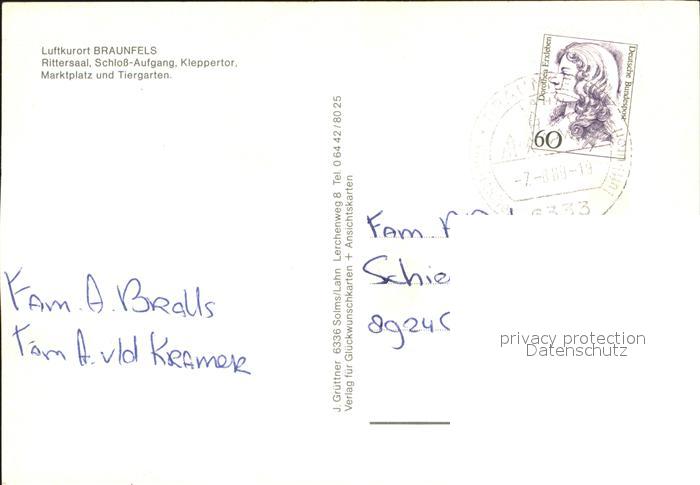 Luftkurort BRAUNFELS
Rittersaal, Schloß-Aufgang, Kleppertor,
Marktplatz und Tiergarten.
Fam. A. Bralls
Fam A. vld Kramer
J. Grüttner 6336 Solms/Lahn Lerchenweg 8 Tel. 0 64 42 / 80 25
Verlag für Glückwunschkarten + Ansichtskarten
Dorothea Erxleben
Deutsche Bundespost
60
6333
Fam
Schie
8924
privacy protection
Datenschutz